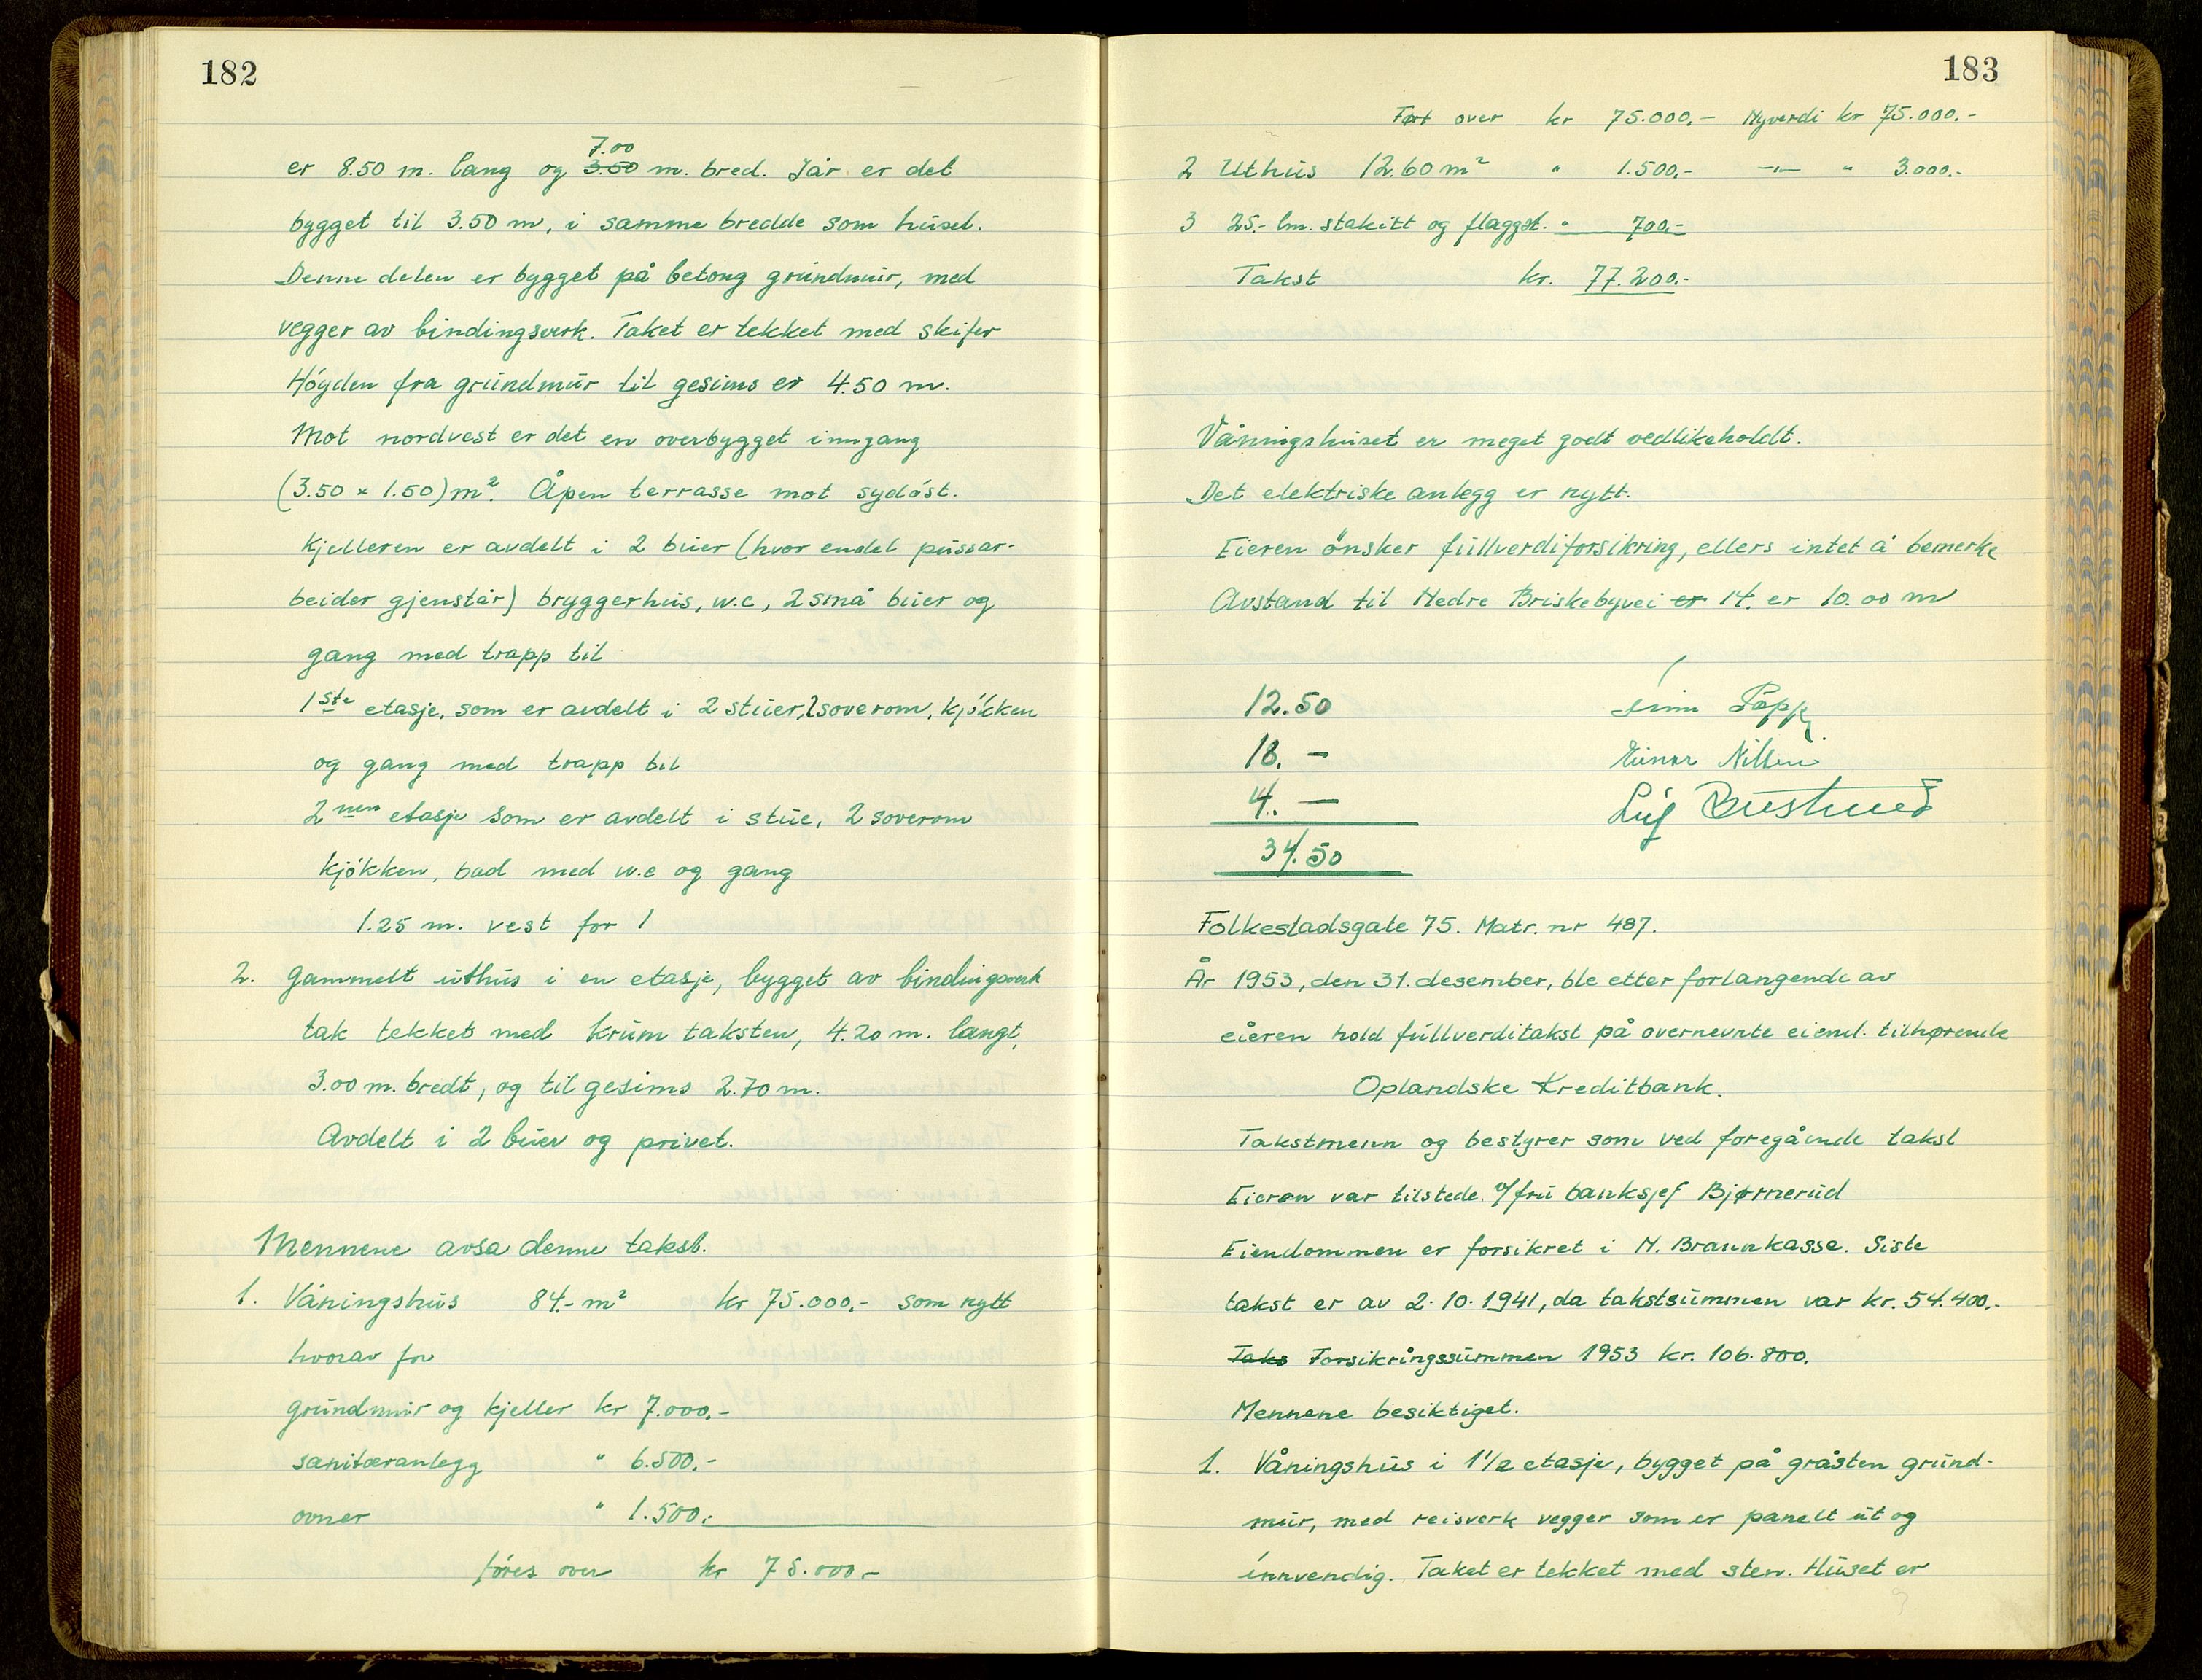 182
7.00
er 8.50 m. lang og 3.50 m. bred. I år er det
bygget til 3.50 m, i samme bredde som huset.
Denne delen er bygget på betong grundmur, med
vegger av bindingsverk. Taket er tekket med skifer
Høyden fra grundmur til gesims er 4.50 m.
Mot nordvest er det en overbygget inngang
(3.50 x 1.50) m². Åpen terrasse mot sydøst.
Kjelleren er avdelt i 2 buer (hvor endel pussar-
beider gjenstår) bryggerhus, w.c, 2 små buer og
gang med trapp til
1ste etasje, som er avdelt i 2 stuer, 2 soverom, kjøkken
og gang med trapp til
2nen etasje som er avdelt i stue, 2 soverom
kjøkken, bad med w.c og gang
1.25 m. vest for 1
2. Gammelt uthus i en etasje, bygget av bindingsverk
tak tekket med krum taksten, 4.20 m. langt,
3.00 m. bredt, og til gesims 2.70 m.
Avdelt i 2 buer og privet.
Mennene avsa denne takst.
1. Våningshus 84.- m² kr 75.000.- som nytt
hvorav for
grundmur og kjeller kr 7.000,-
sanitæranlegg " 6.500.-
ovner " 1.500.-
føres over kr 75.000.-
183
Ført over kr 75.000.- Nyverdi kr 75.000.-
2 Uthus 12.60 m² " 1.500.- -"- " 3.000.-
3 25.- lm. stakitt og flaggst. " 700.-
Takst kr. 77.200.-
Våningshuset er meget godt vedlikeholdt.
Det elektriske anlegg er nytt.
Eieren ønsker fullverdiforsikring, ellers intet å bemerke
Avstand til Nedre Briskebyvei er 14. er 10.00 m
12.50
18. -
Einar
4. -
34.50
Folkestadsgate 75. Matr. nr 487.
År 1953, den 31. desember, ble etter forlangende av
eieren hold fullverditakst på overnevnte eiend. tilhørende
Oplandske Kreditbank.
Takstmenn og bestyrer som ved foregående takst
Eieren var tilstede v/fru banksjef Bjørnerud
Eiendommen er forsikret i N. Brannkasse. Siste
takst er av 2.10.1941, da takstsummen var kr. 54.400.-
Taks Forsikringssummen 1953 kr. 106.800.
Mennene besiktiget.
1. Våningshus i 1 1/2 etasje, bygget på gråsten grund-
mur, med reisverk vegger som er panelt ut og
innvendig. Taket er tekket med sten. Huset er